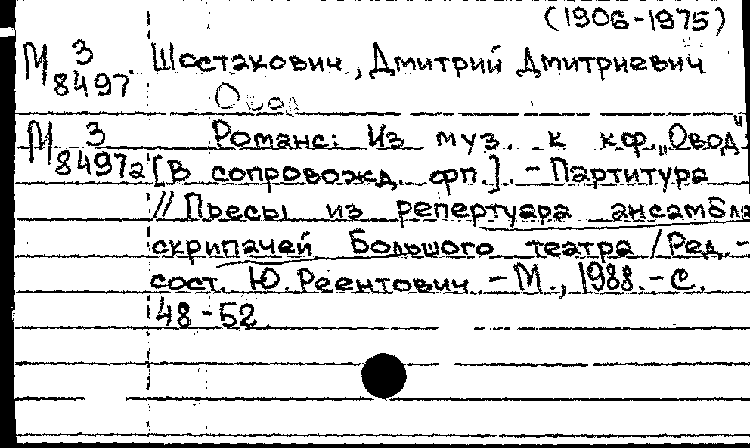 (1906-1975)
М 3 Шостакович, Дмитрий Дмитриевич
8497
Овод
М 3 Романс: Из муз. к кф. „Овод“:
8497а [В сопровожд. фп.]. - Партитура
// Пьесы из репертуара ансамбля
скрипачей Большого театра / Ред.-
сост. Ю. Реентович. - М., 1988. - С.
48-52